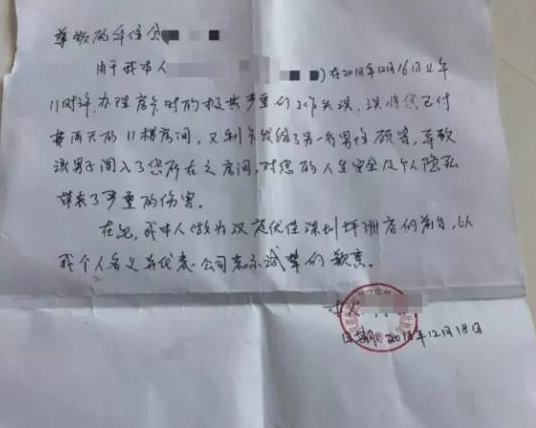 尊敬的牟佳公
由于我本人 )在2018年12月16日上午
11时许,办理房卡时的极其严重的工作失误,误将您已付
费两天的11楼房间,又制卡发给了另一名男性顾客,导致
该男子闯入了您所在之房间,对您的人生安全及个人隐私
带来了严重的伤害。
在此,我本人做为汉庭优佳深圳坪洲店的前台,以
我个人名义并代表公司表示诚挚的歉意。
日期:2018年12月18日